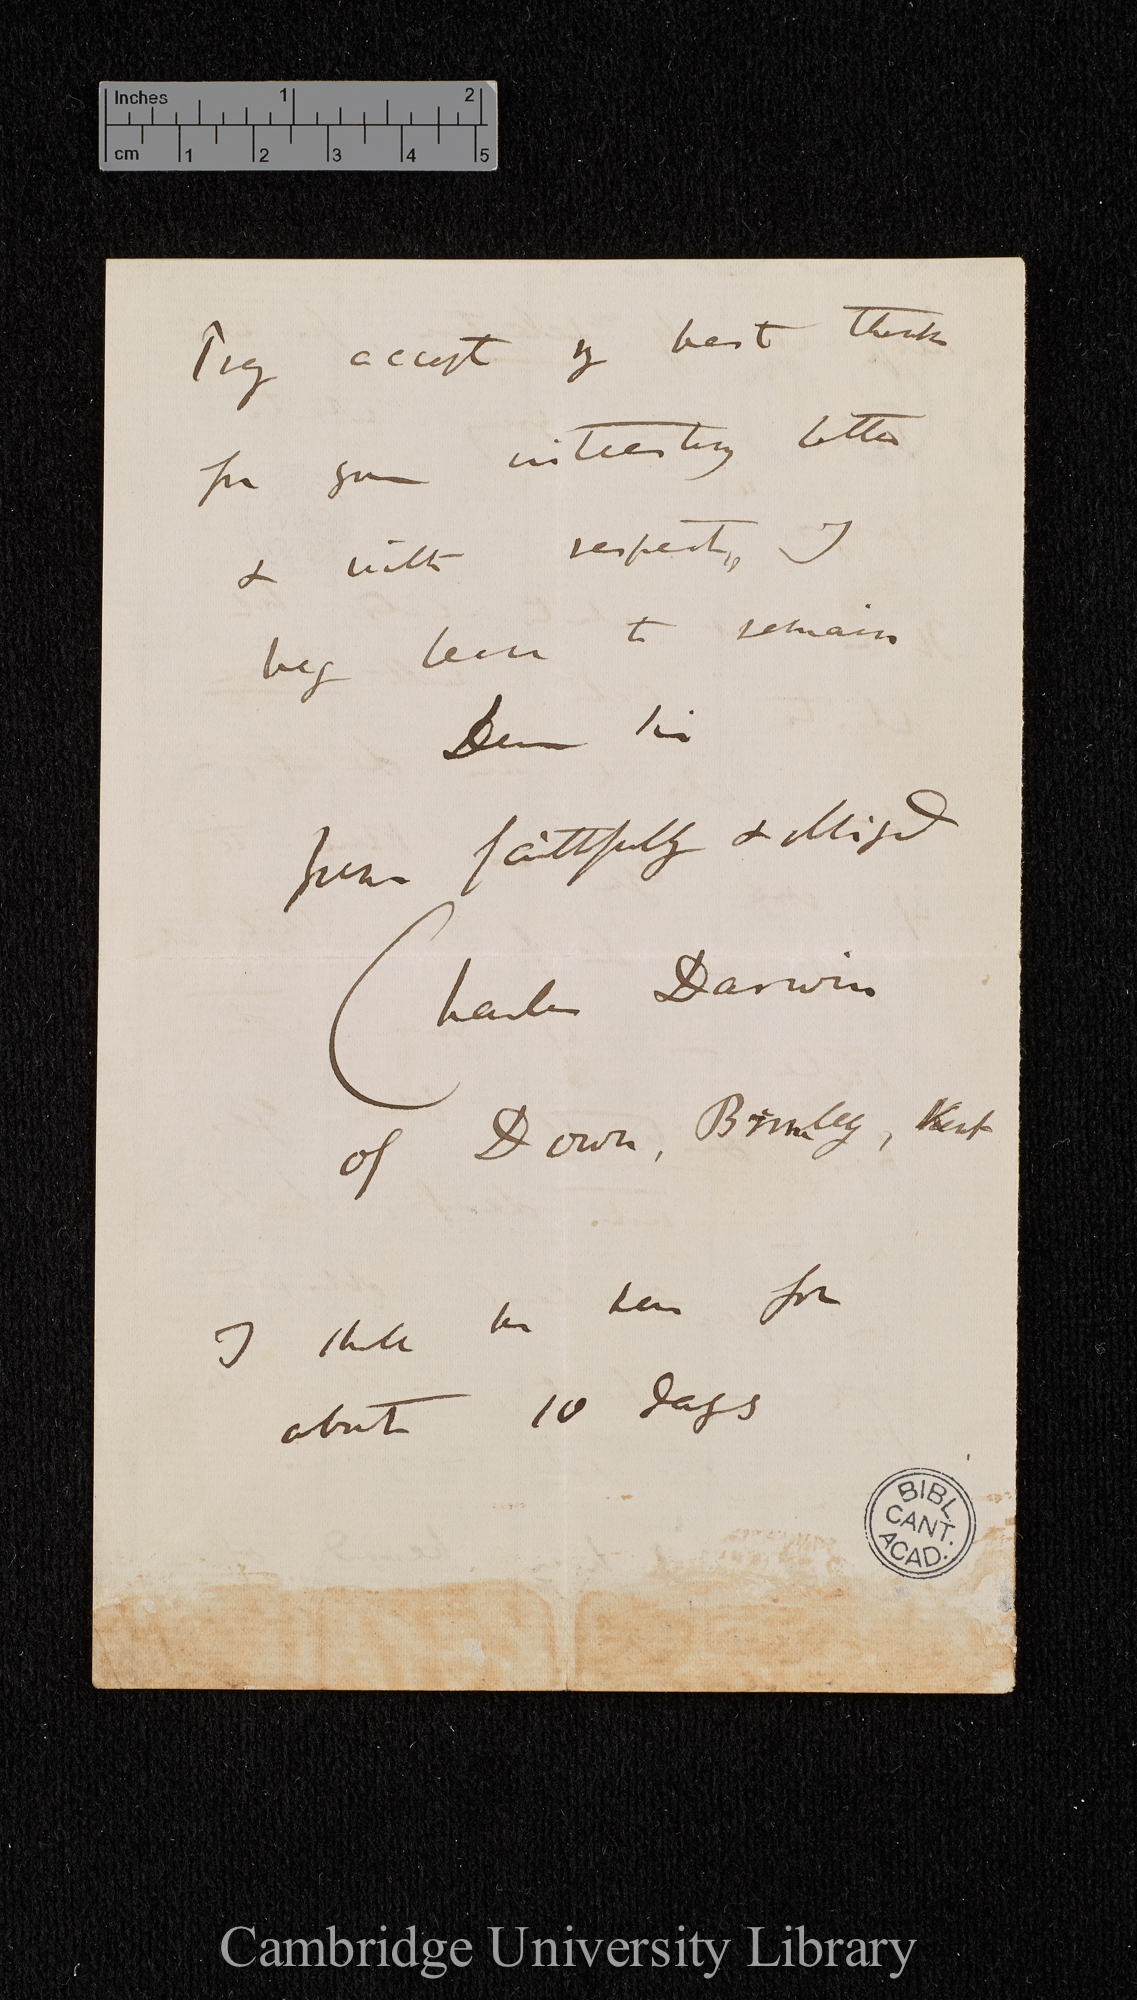 Inches 1 2
cm 1 2 3 4 5
Pray accept my best thanks
for your interesting letter
& with respect, I
beg leave to remain
Dear Sir
Yours faithfully & obliged
Charles Darwin
of Down, Bromley, Kent
I shall be here for
about 10 days
BIBL
CANT.
ACAD.
Cambridge University Library